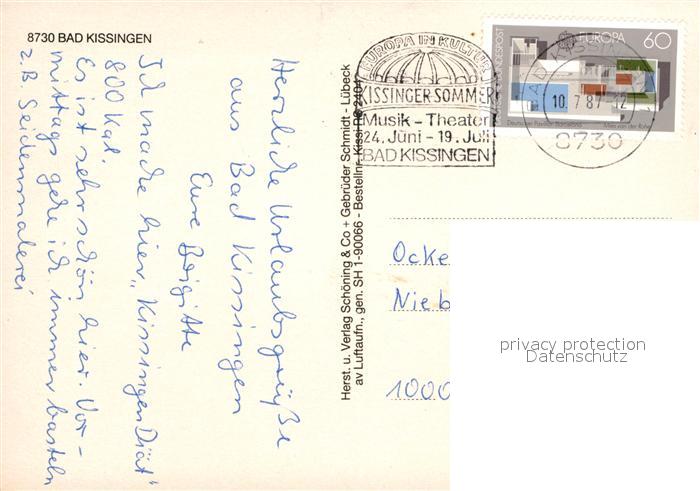 8730 BAD KISSINGEN
Herzliche Urlaubsgrüße
aus Bad Kissingen
Eure Brigitte
Ich mache hier „Kissingen Diät"
800 Kal.
Es ist sehr schön hier. Vor-
mittags gehe ich immer basteln
z.B. Seidenmalerei
Herst. u. Verlag Schöning & Co + Gebrüder Schmidt - Lübeck
av Luftaufn., gen. SH 1-90066 - Bestellnr. Kissi
EUROPA IN KULTUR
KISSINGER SOMMER
Musik - Theater
24. Juni - 19. Juli
BAD KISSINGEN
BUNDESPOST
EUROPA
60
Deutscher Pavillon Barcelona
Mies van der Rohe
BAD KISSINGEN
10.7.87-12
8730
Ocke
Nieb
1000
privacy protection
Datenschutz